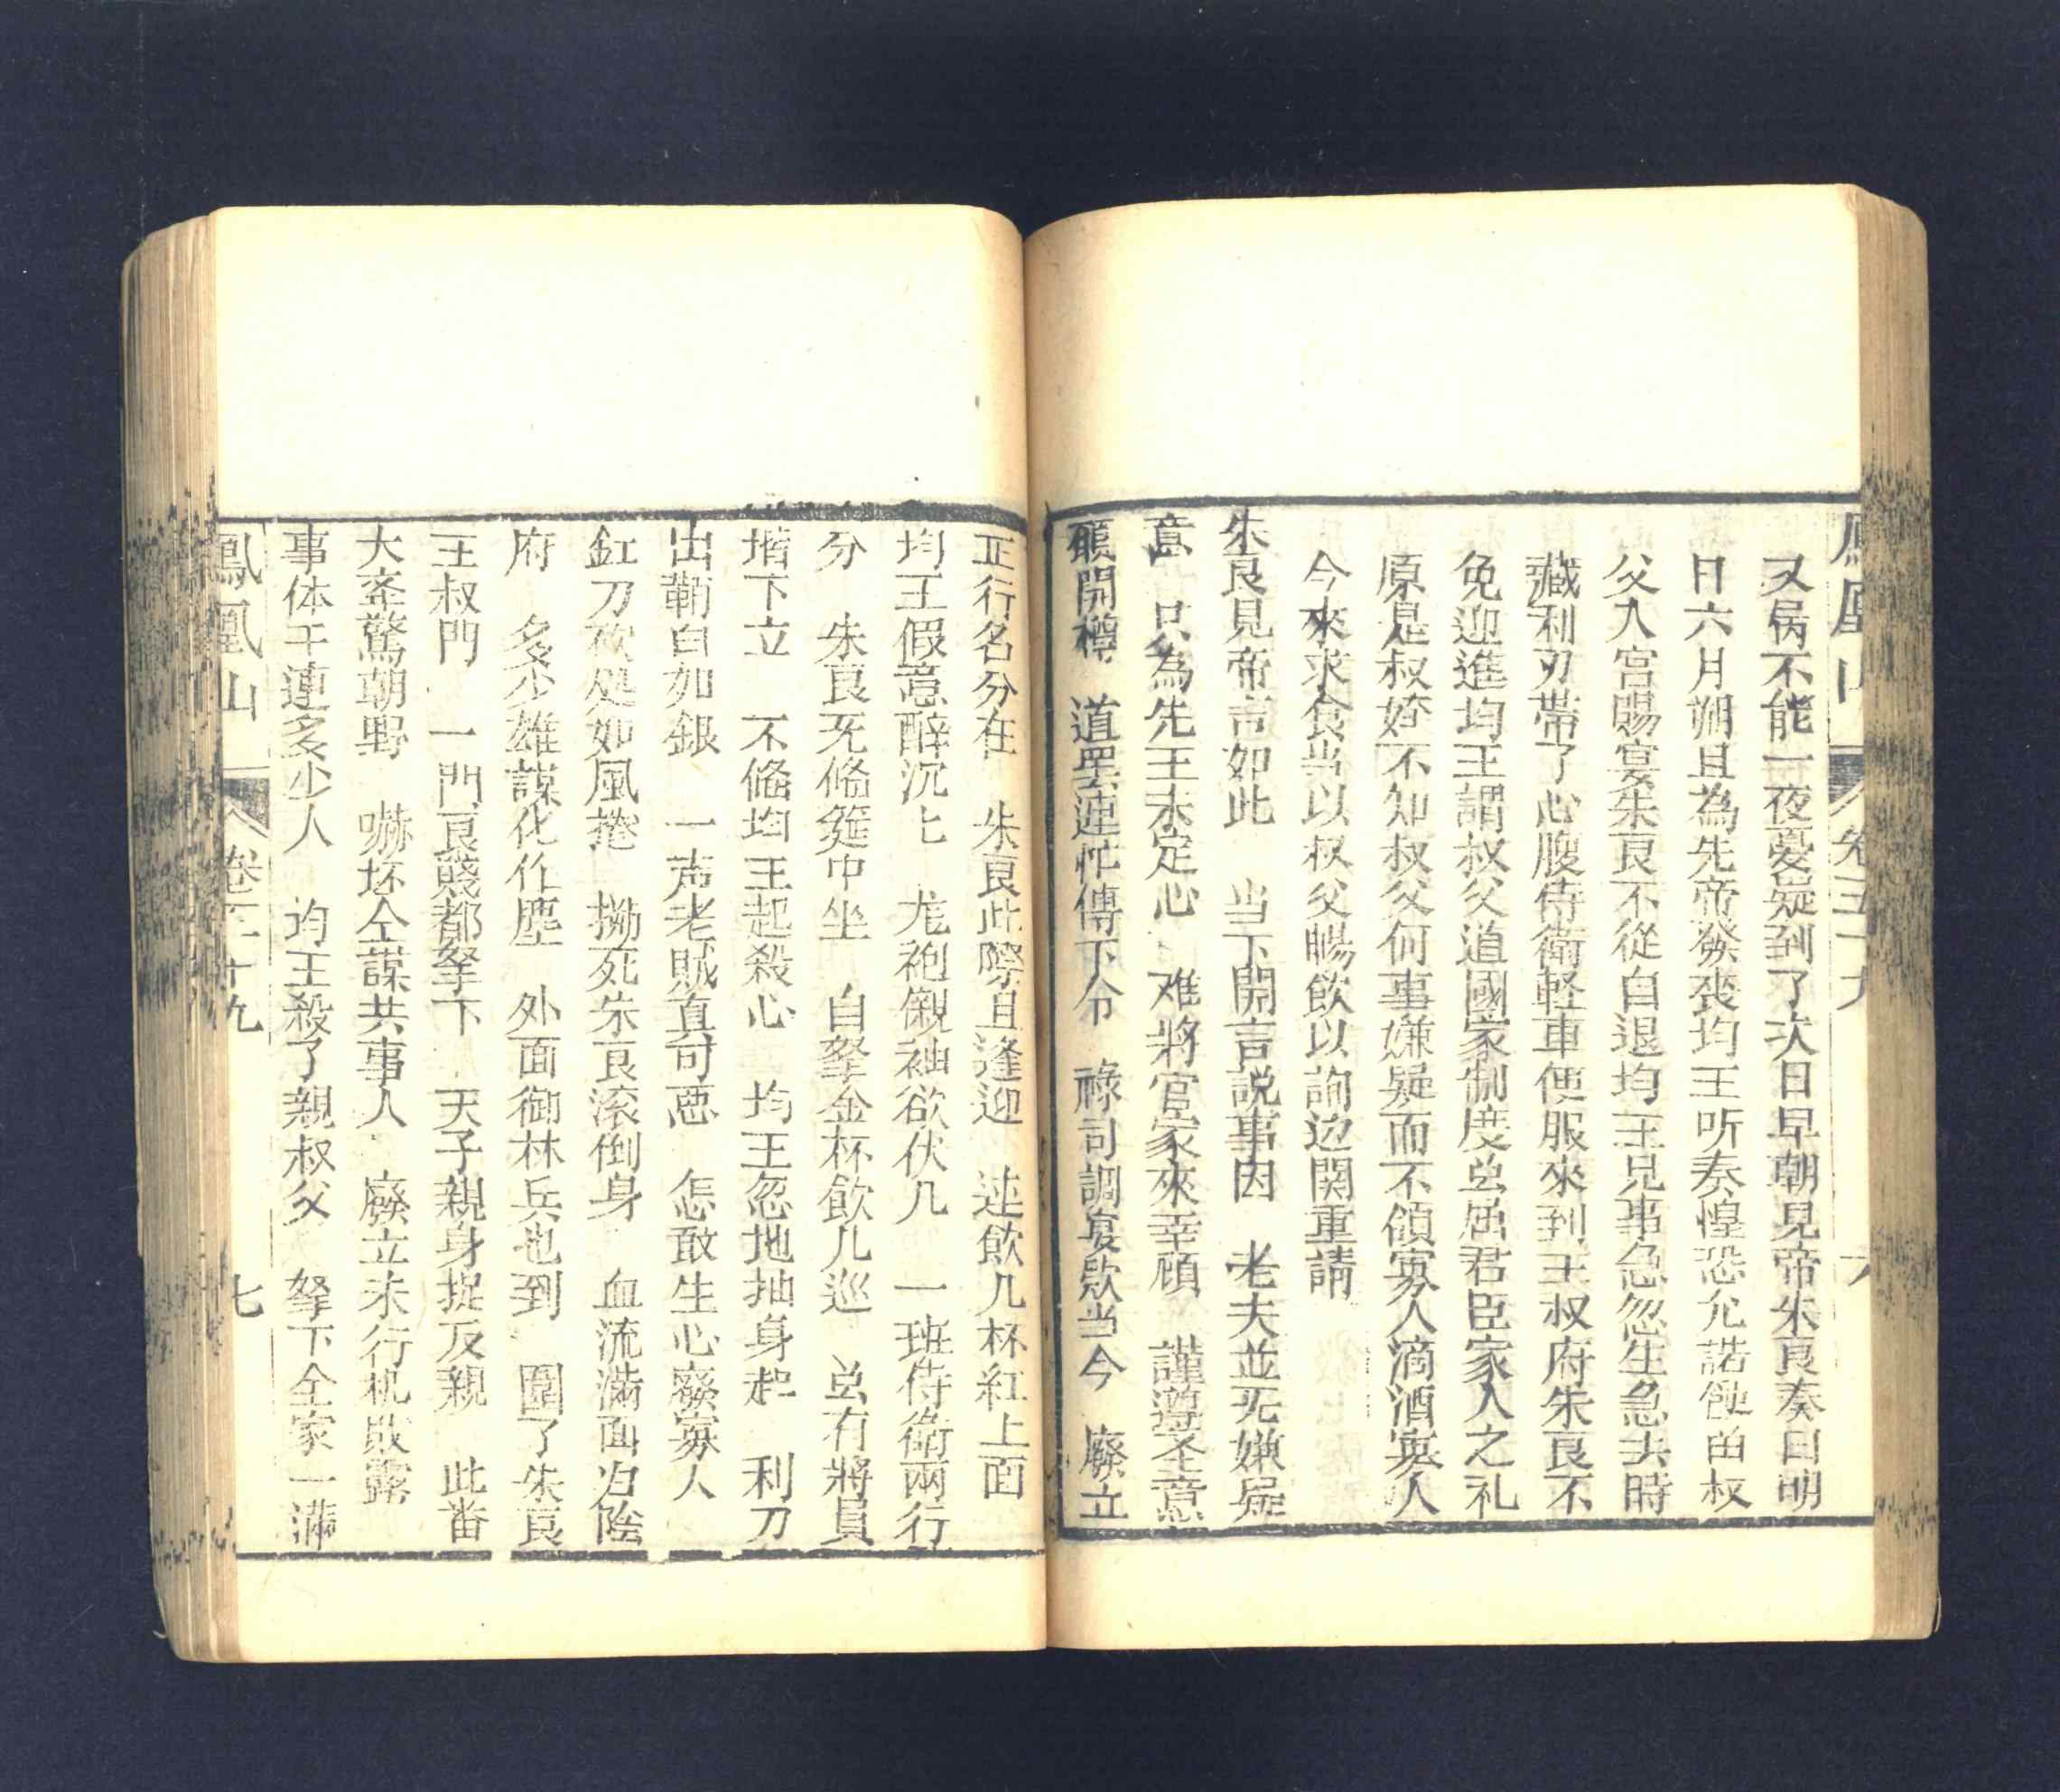 鳳凰山 卷五十九 六
又俩不能一夜憂疑到了次日早朝見帝朱良奏曰明
日六月朔且為先帝發丧均王听奏惶恐允諾餽畄叔
父入宮賜宴朱良不從自退均王兄事急忽生急去時
藏利刃帶了心腹侍衛軽車便服來到王叔府朱良不
免迎進均王謂叔父道國家制度㒷屈君臣家人之礼
原是叔姪不知叔父何事嫌疑而不領寡人滴酒寡人
今來求食当以叔父賜飲以詢边関重請
朱良見帝言如此 当下開言説事因 老夫並旡嫌疑
意 只為先王未定心 难將官家來幸頋 謹遵圣意
願開樽 道罢連忙傳下令 祿司調宴欵当今 廢立
正行名分在 朱良此際且逢迎 连飲几杯紅上面
均王假意醉沉匕 龙袍儭袖欲伏几 一班侍衛兩行
分 朱良旡俻筵中坐 自拏金杯飲几巡 㒷有將員
堦下立 不俻均王起殺心 均王忽地抽身起 利刀
出鞘白如銀 一声老賊真可惡 怎敢生心廢寡人
釭刀砍処如風捲 㧕死朱良滚倒身 血流滿面归陰
府 多少雄謀化作塵 外面御林兵也到 圍了朱良
王叔門 一門良賤都拏下 天子親身捉反親 此番
大変驚朝野 嚇坏仝謀共事人 廢立未行机敗露
事体干連多少人 均王殺了親叔父 拏下全家一滿
鳳凰山 卷五十九 七